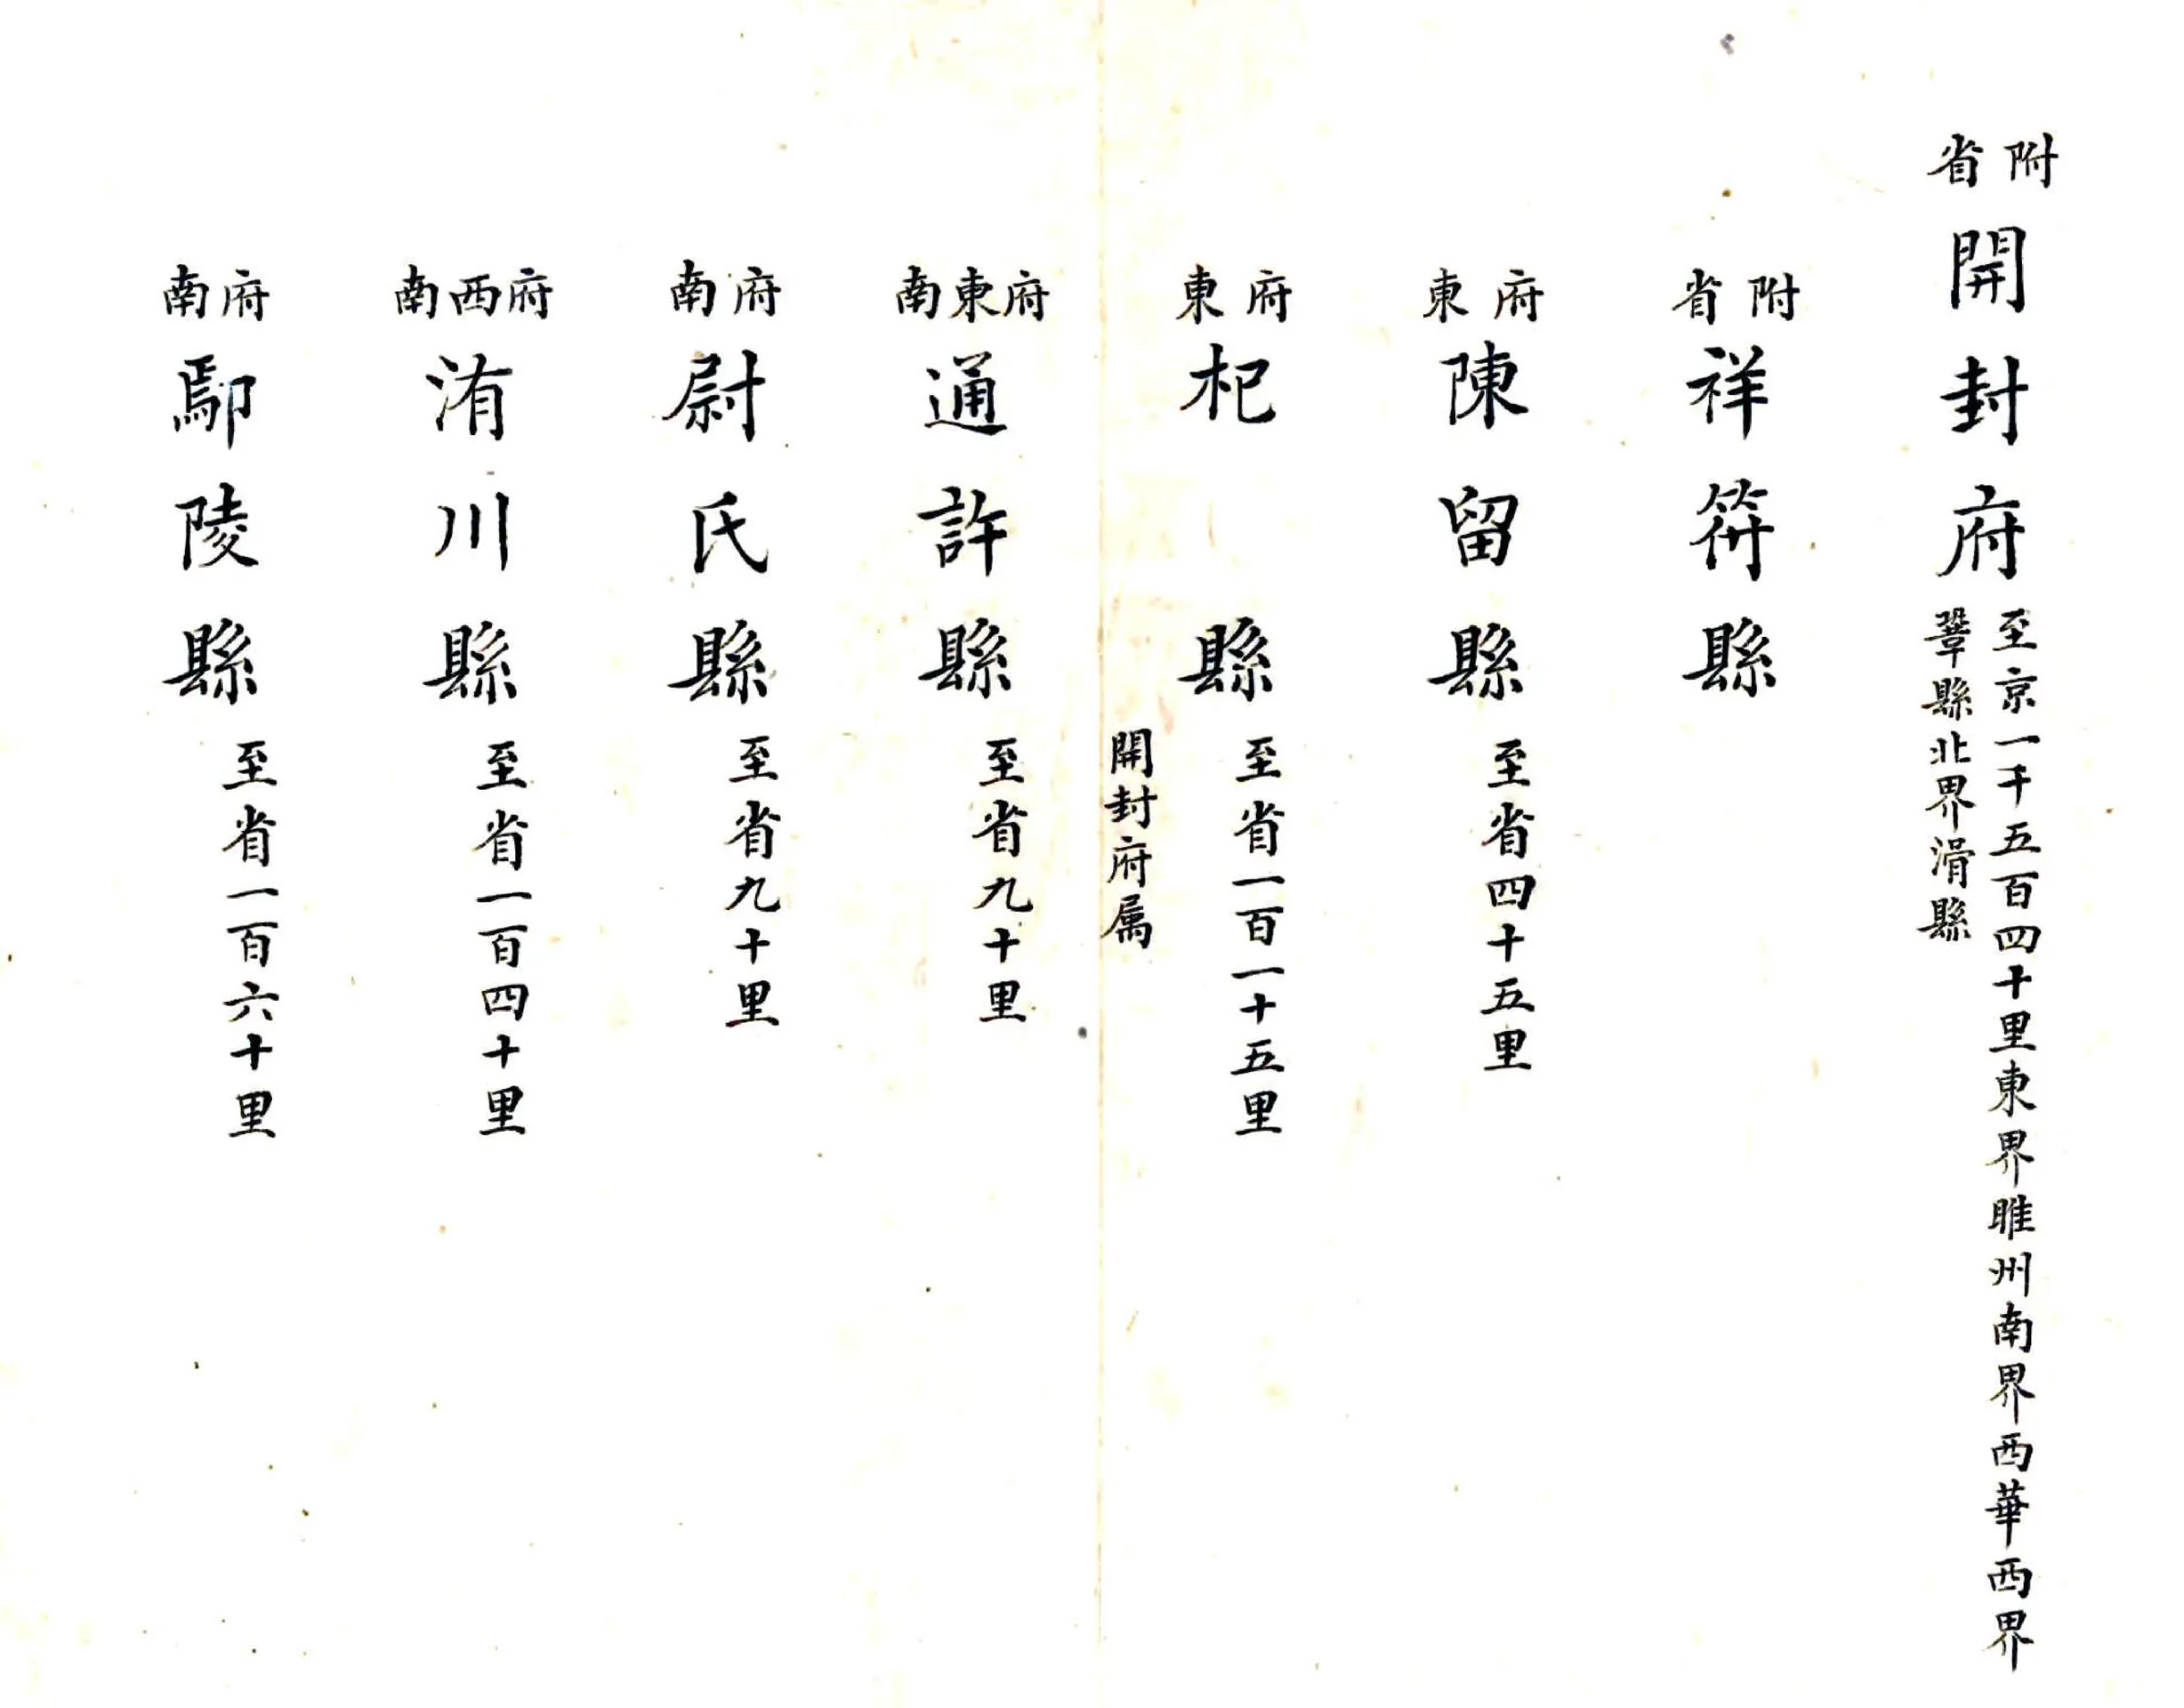 附省
開封府
至京一千五百四十里東界睢州南界西華西界
鞏縣北界滑縣
附省
祥符縣
府東
陳留縣
至省四十五里
府東
杞縣
至省一百一十五里
開封府属
府東南
通許縣
至省九十里
府南
尉氏縣
至省九十里
府西南
洧川縣
至省一百四十里
府南
鄢陵縣
至省一百六十里